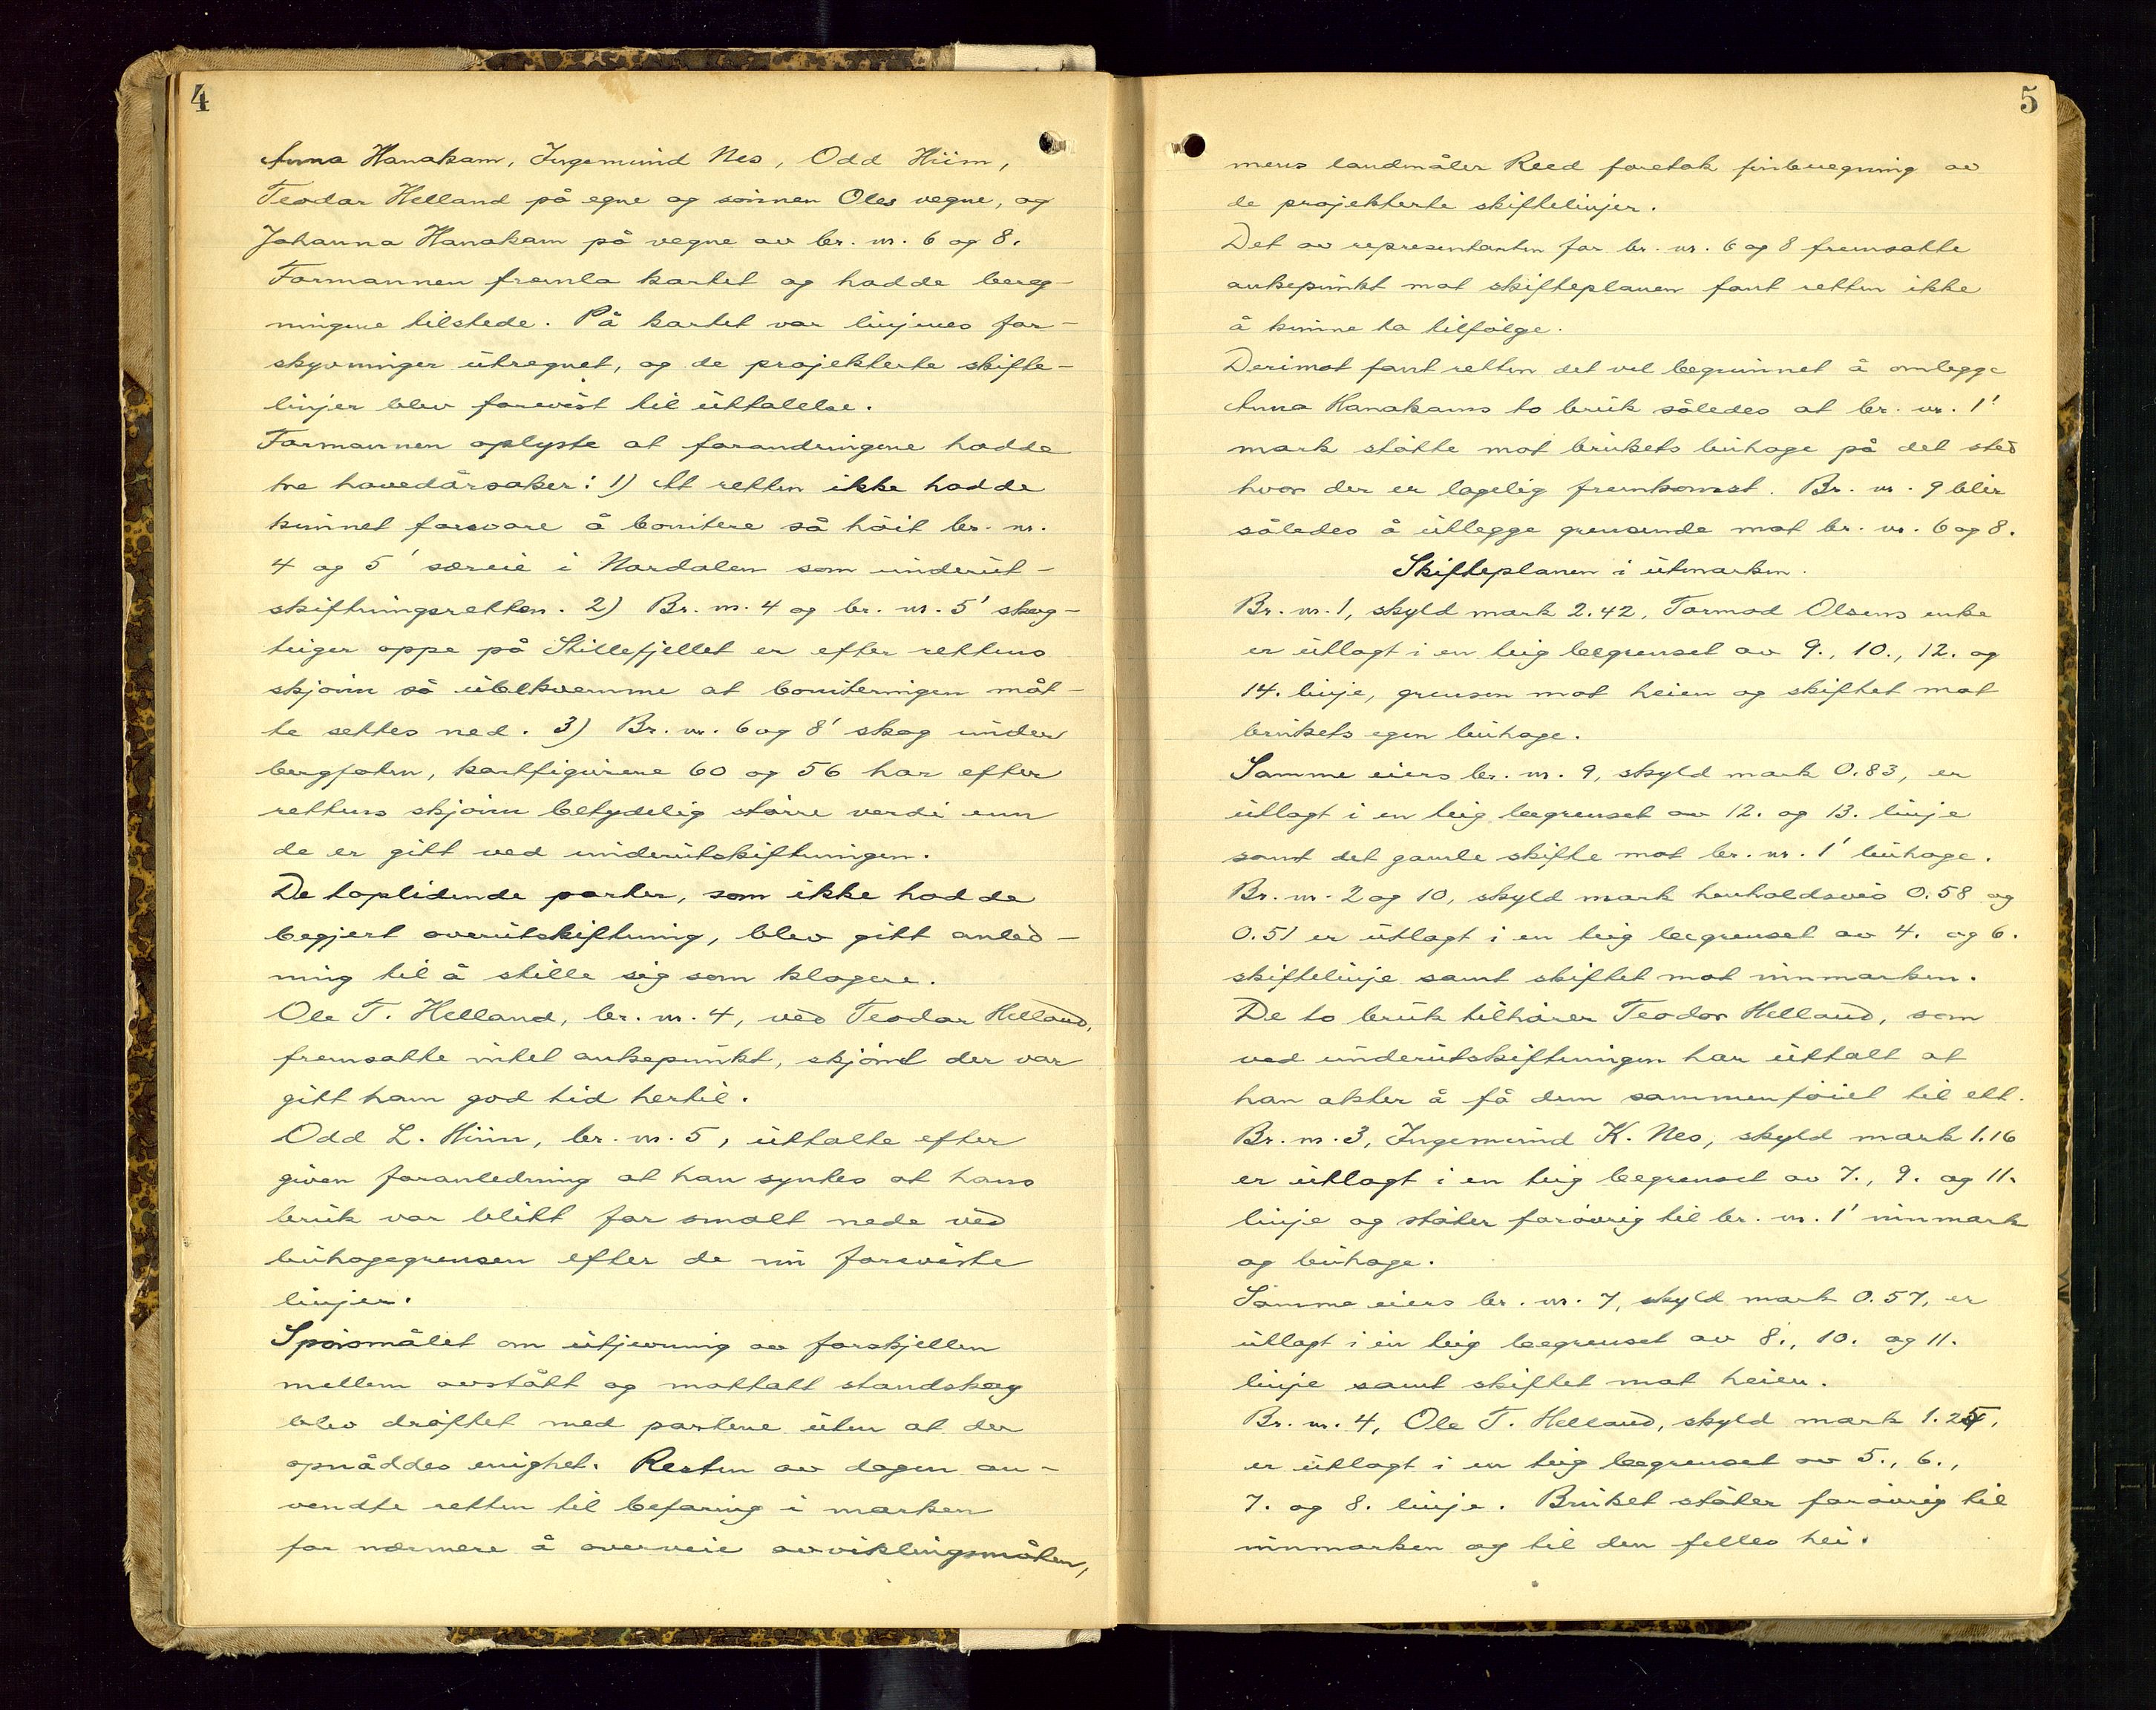 4
Anna Hanakam, Ingemund Nes, Odd Hiim,
Teodar Helland på egne og sønnen Oles vegne, og
Johanna Hanakam på vegne av br. nr. 6 og 8.
Formannen fremla kartet og hadde bereg-
ningene tilstede. På kartet var linjenes for-
skyvninger utregnet, og de projekterte skifte-
linjer blev forevist til uttalelse.
Formannen oplyste at forandringene hadde
tre hovedårsaker: 1) At retten ikke hadde
kunnet forsvare å bonitere så høit br. nr.
4 og 5' særeie i Nordalen som underut-
skiftningsretten. 2) Br. nr. 4 og br. nr. 5' skog-
teiger oppe på Stillefjellet er efter rettens
skjønn så ubekvemme at boniteringen måt-
te settes ned. 3) Br. nr. 6 og 8' skog under
bergfoten, kartfigurene 60 og 56 har efter
rettens skjønn betydelig større verdi enn
de er gitt ved underutskiftningen.
De taplidende parter, som ikke hadde
begjert overutskiftning, blev gitt anled-
ning til å stille sig som klagere.
Ole T. Helland, br. nr. 4, ved Teodar Helland,
fremsatte intet ankepunkt, skjønt der var
gitt ham god tid hertil.
Odd L. Hiim, br. nr. 5, uttalte efter
given foranledning at han syntes at hans
bruk var blitt for smalt nede ved
buhagegrensen efter de nu foreviste
linjer.
Spørsmålet om utjevning av forskjellen
mellem avstått og mottatt standskog
blev drøftet med partene uten at der
opnåddes enighet. Resten av dagen an-
vendte retten til befaring i marken
for nærmere å overveie avviklingsmåten,
5
mens landmåler Reed foretok finberegning av
de projekterte skiftelinjer.
Det av representanten for br. nr. 6 og 8 fremsatte
ankepunkt mot skifteplanen fant retten ikke
å kunne ta tilfølge.
Derimot fant retten det vel begrunnet å omlegge
Anna Hanakams to bruk således at br. nr. 1'
mark støtte mot brukets buhage på det sted
hvor der er lagelig fremkomst. Br. nr. 9 blir
således å utlegge grensende mot br. nr. 6 og 8.
Skifteplanen i utmarken.
Br. nr. 1, skyld mark 2.42, Tormod Olsens enke
er utlagt i en teig begrenset av 9., 10., 12. og
14. linje, grensen mot heien og skiftet mot
brukets egen buhage.
Samme eiers br. nr. 9, skyld mark 0.83, er
utlagt i en teig begrenset av 12. og 13. linje
samt det gamle skifte mot br. nr. 1' buhage.
Br. nr. 2 og 10, skyld mark henholdsvis 0.58 og
0.51 er utlagt i en teig begrenset av 4. og 6.
skiftelinje samt skiftet mot innmarken.
De to bruk tilhører Teodor Helland, som
ved underutskiftningen har uttalt at
han akter å få dem sammenføiet til ett.
Br. nr. 3, Ingemund K. Nes, skyld mark 1.16
er utlagt i en teig begrenset av 7., 9. og 11.
linje og støter forøvrig til br. nr. 1' innmark
og buhage.
Samme eiers br. nr. 7, skyld mark 0.57, er
utlagt i en teig begrenset av 8., 10. og 11.
linje samt skiftet mot heien.
Br. nr. 4, Ole T. Helland, skyld mark
er utlagt i en teig begrenset av 5., 6.,
7. og 8. linje. Bruket støter forøvrig til
innmarken og til den felles hei.